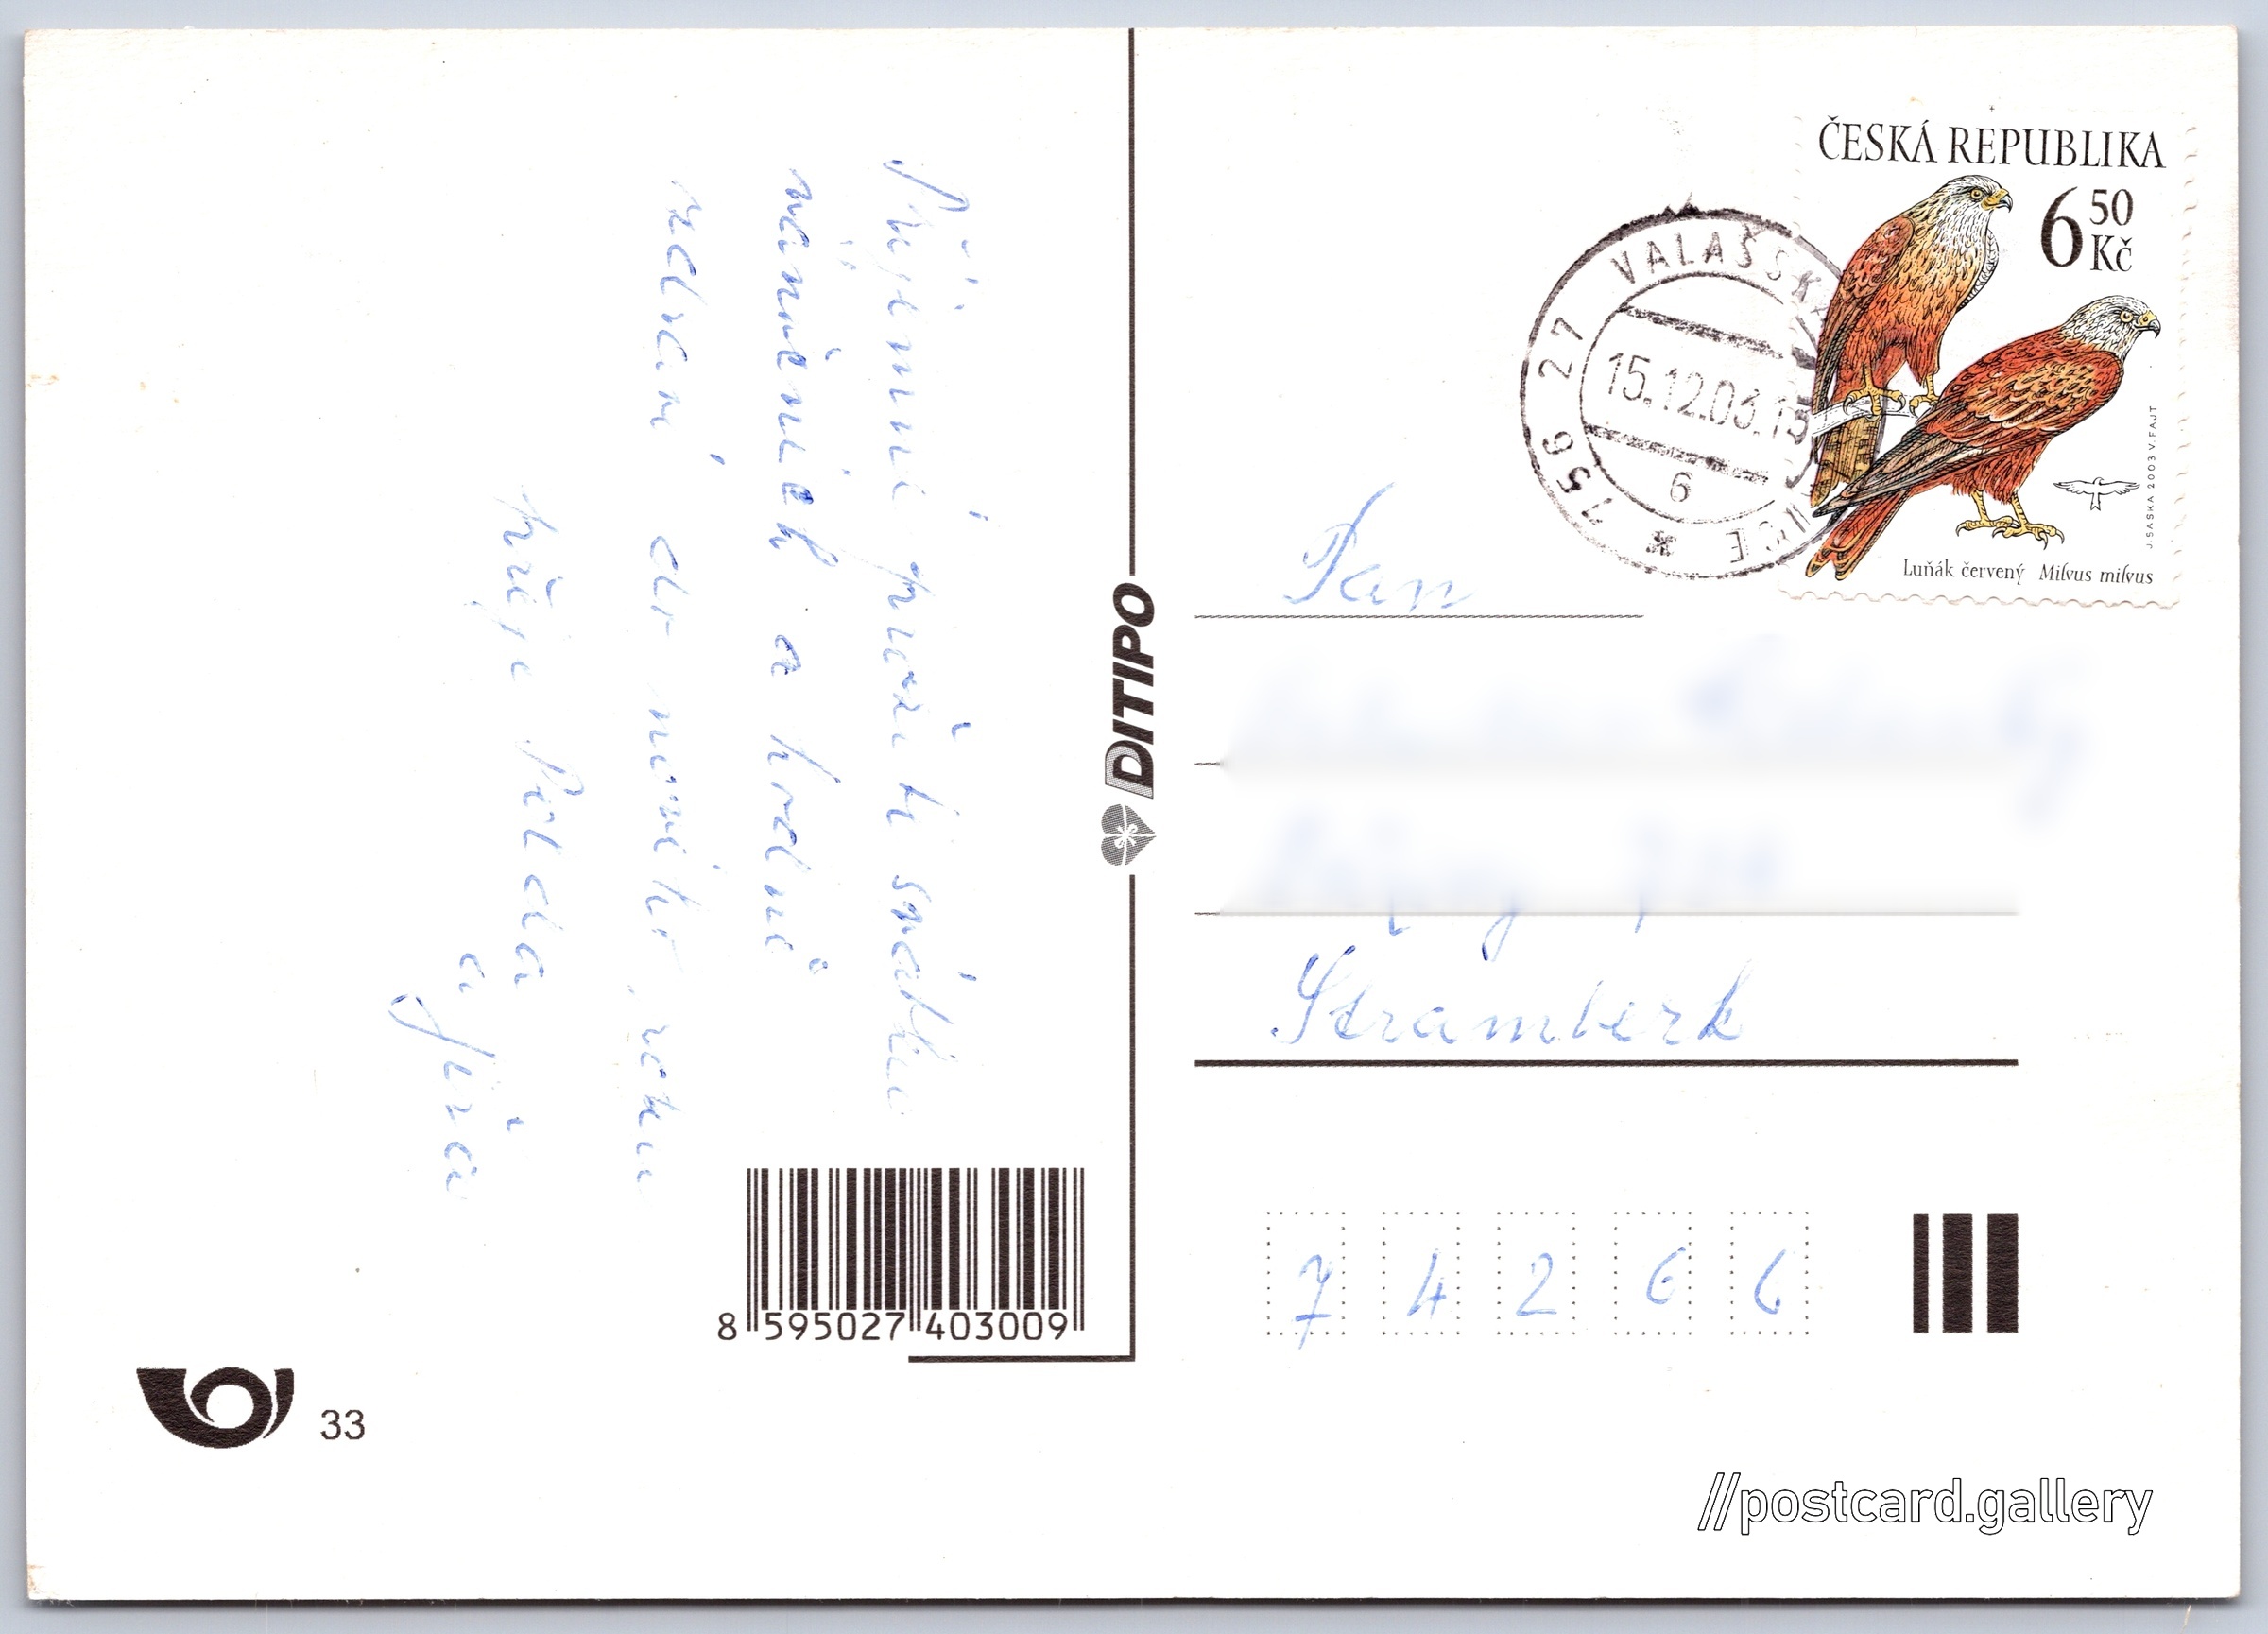 Příjemné prožití svátků
vánočních a hodně
zdraví do nového roku
přeje
a Jiřa
33
8 595027 403009
DITIPO
ČESKÁ REPUBLIKA
6 50 Kč
J. SASKA 2003 V. FAJT
Luňák červený Milvus milvus
756 27 VALAŠSK
15.12.03.15
6
Pan
Štramberk
7 4 2 6 6
//postcard.gallery